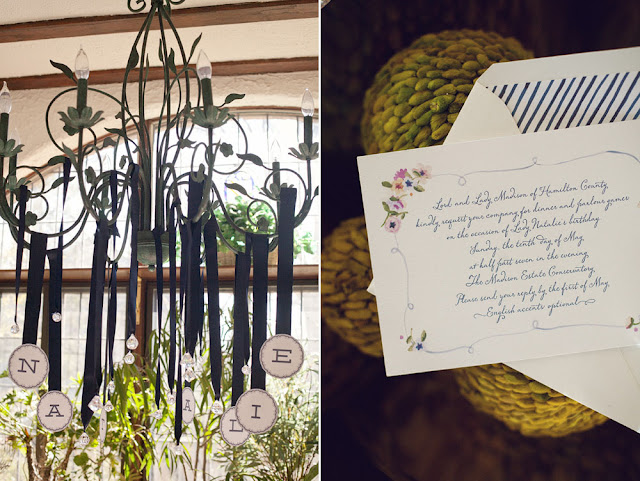 N
E
A
L
I
Lord and Lady Madison of Hamilton County,
kindly request your company for dinner and parlour games
on the occasion of Lady Natalie's birthday
Sunday, the tenth day of May
at half past seven in the evening
The Madison Estate Conservatory
Please send your reply by the first of May
English accents optional